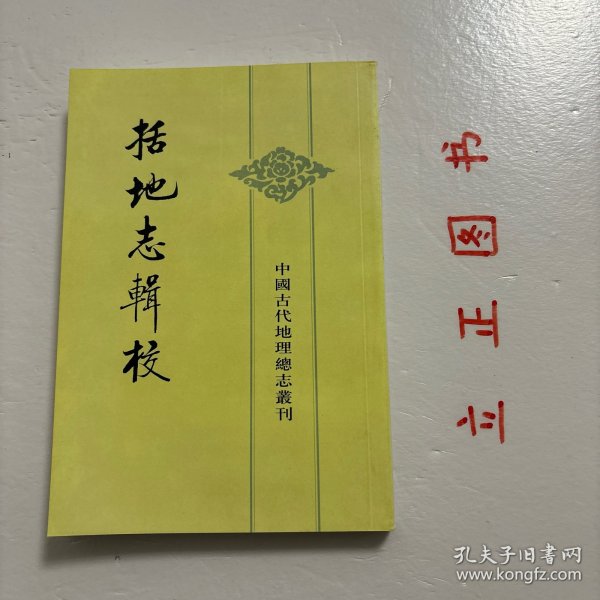 括地志輯校
中國古代地理總志叢刊
立正图书
孔夫子旧书网
www.kongfz.com